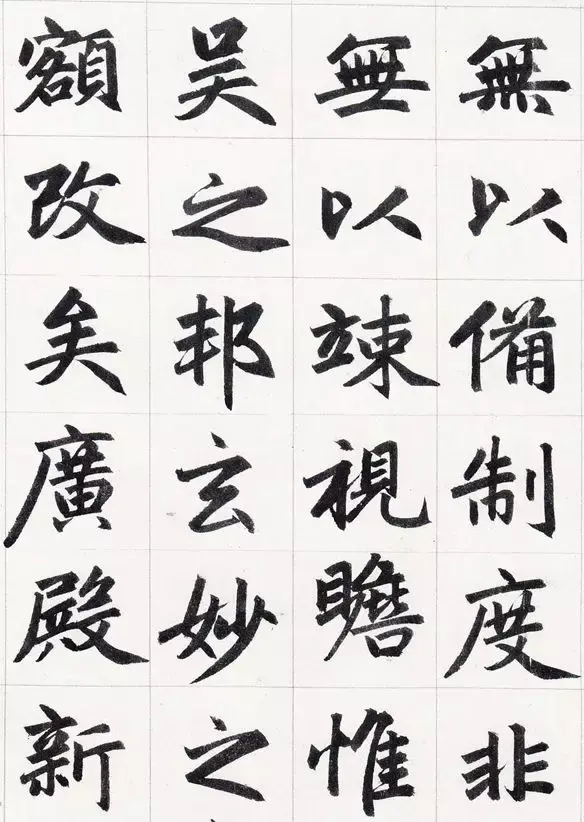 無以備制度非
無以竦視瞻惟
吴之邦玄妙之
額改矣廣殿新